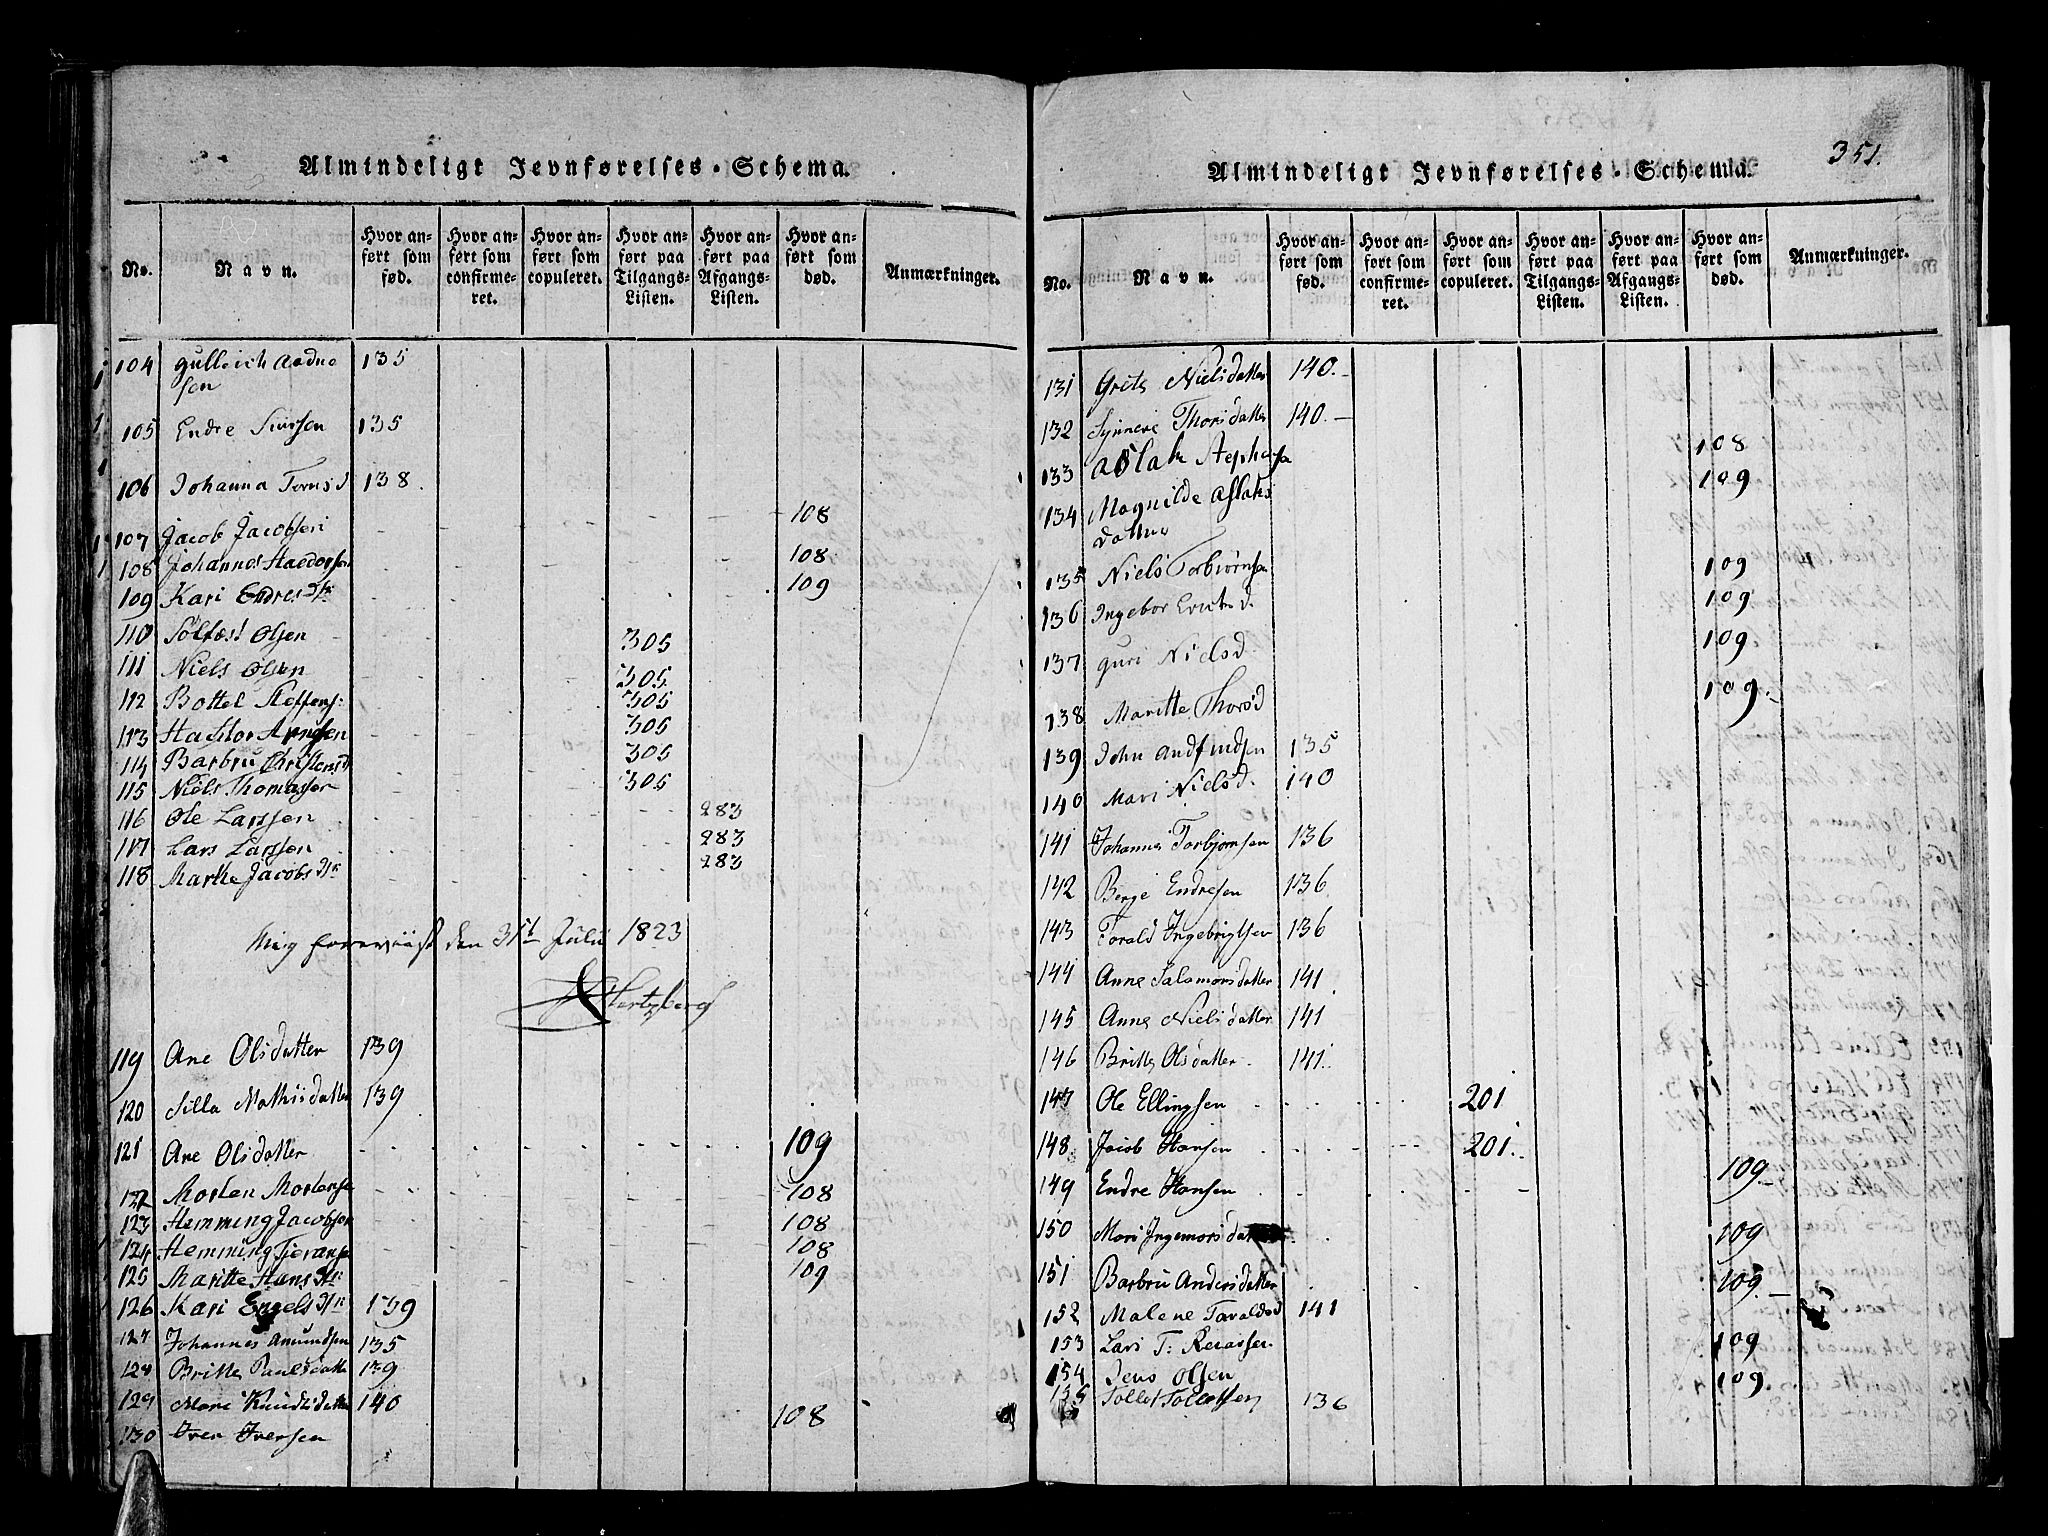 Almindeligt Jevnførelses-Schema.
No. Navn. Hvor anført som fød. Hvor anført som confirmeret. Hvor anført som copuleret. Hvor anført paa Tilgangs-Listen. Hvor anført paa Afgangs-Listen. Hvor anført som død. Anmærkninger.
104 Gulleich Aadne 135
sen
105 Endre Siursen 135
106 Johanna Tornsd 138.
107 Jacob Jacobsen 108
108 Johannes 108
109 Kari Endresdtr 109
110 Solfæst Olsen 305
111 Niels Olsen 305
112 Bottel Steffens: 305
113 Hastor 305
114 Barbru Christensd 305
115 Niels Thomassen 305
116 Ole Larssen 283
117 Lars Larssen 283
118 Marthe Jacobsdtr 283
foreviist den 31t Julii 1823
Hertzberg
119 Ane Olsdatter 139
120 Silla Mathiisdatter 139
121 Ane Olsdatter 109
122 Morten Mortense 108
123 Hemming Jacobsen 108
124 Hemming Tjeranse 108
125 Maritte Hansdtr 109
126 Kari Engelsdtr 139
127 Johannes Amundsen 135
128 Britte Paulsdatte 139
129 Mari Knudsdatte 140
130 Iver Iversen 108
351.
Almindeligt Jevnførelses-Schema.
No. Navn. Hvor anført som fød. Hvor anført som confirmeret. Hvor anført som copuleret. Hvor anført paa Tilgangs-Listen. Hvor anført paa Afgangs-Listen. Hvor anført som død. Anmærkninger.
131 Grite Nielsdatter 140.
132 Synneve Thorsdatter 140.
133 Aslak 108
134 Magnilde Aslaks 109
datter
135 Niels Torbiørnsen 109
136 Ingebor Erichsd. 109
137 Guri Nielsd. 109
138 Maritte Thorsd 109.
139 John Andfindsen 135
140 Mari Nielsd. 140
141 Johannes Torbjørnsen 136
142 Berje Endresen 136
143 Torald Ingebrigtsen 136
144 Anne Salamonsdatter 141
145 Anne Nielsdatter 141
146 Britte Olsdatter 141
147 Ole Ellingsen 201
148 Jacob Hansen 201
149 Endre Hansen 109.
150 Mari 109
151 Barbru Andersdatter 109.
152 Malene Taraldsd 141
153 Lars T: 109
154 Jens Olsen 109
155 Tollef Tollefsen 136